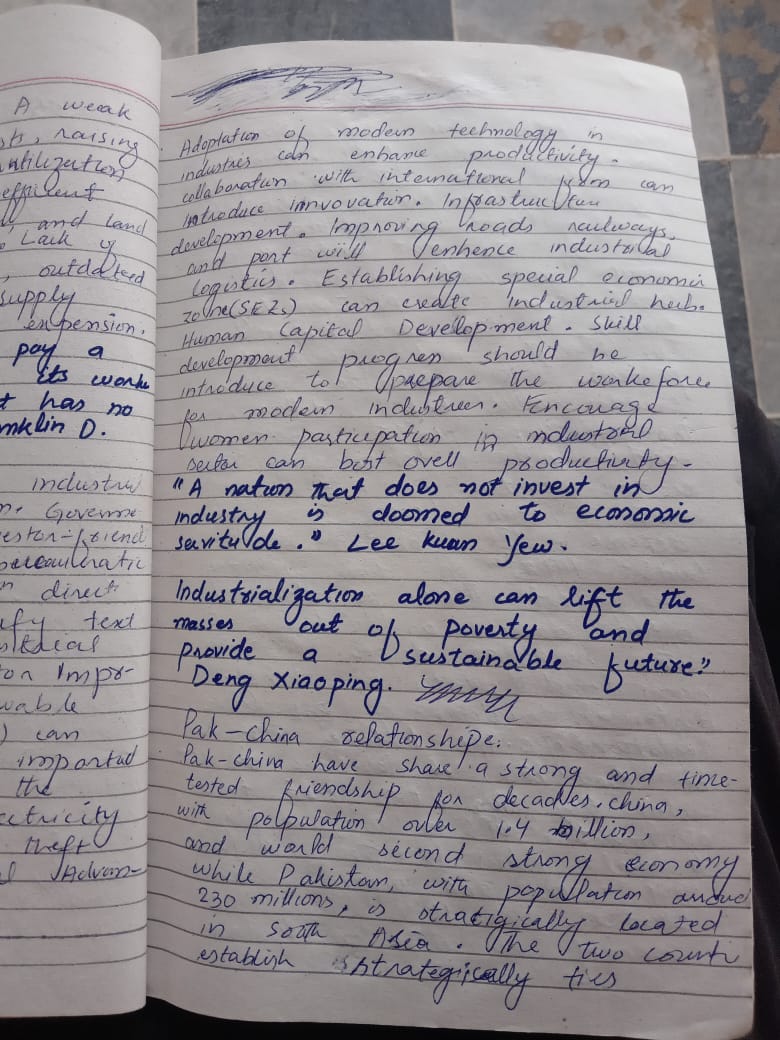 A weak
raising
utilization
efficient
and land
Lack of
outdated
supply
expension.
pay a
its worke
t has no
nklin D.
industri
Governme
estor-friend
bereaucratic
direct
text
Impr-
wable
) can
imported
the
ctricity
theft
Advan-
Adoptation of modern technology in
industries can enhance productivity.
collaboration with international firm can
introduce innvovation. Infrastructure
development. Improving roads railways,
and port will enhence industrial
logistics. Establishing special economic
zone(SEZs) can create industrial hub.
Human Capital Development. Skill
development progrem should be
introduce to prepare the workeforce
for modern industries. Encouage
women participation in industrial
sector can bost ovell productivity.
"A nation that does not invest in
industry is doomed to economic
servitude." Lee Kuan Yew.
Industrialization alone can lift the
masses out of poverty and
provide a sustainable future."
Deng Xiaoping.
Pak-china relationshipe.
Pak-china have share a strong and time-
tested friendship for decades. china,
with polpulation over 1.4 billion,
and world second strong economy
while Pakistan, with population around
230 millions, is stratigically located
in South Asia. The two counti
establish strategically ties